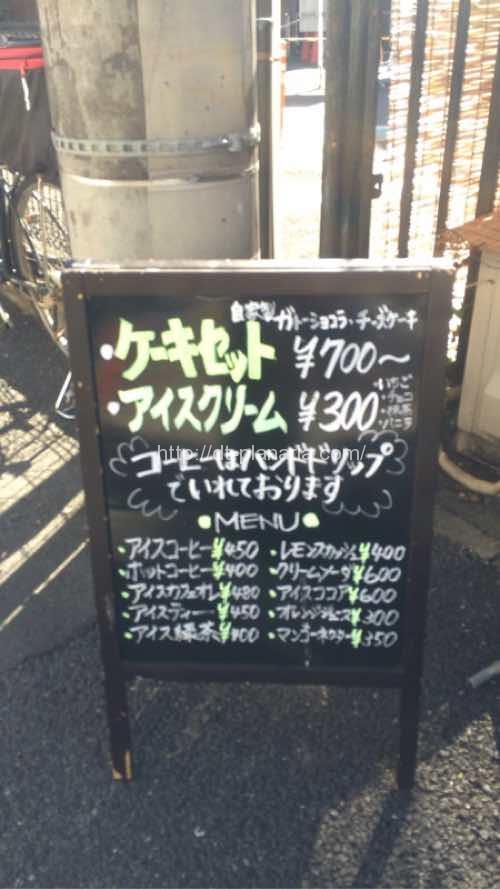 自家製 ガトーショコラ・チーズケーキ
・ケーキセット ¥700〜
・アイスクリーム ¥300
・いちご
・チョコ
・抹茶
・バニラ
コーヒーはハンドドリップ
でいれております
http://dt-planaria.com/
●MENU●
・アイスコーヒー ¥450
・ホットコーヒー ¥400
・アイスカフェオレ ¥480
・アイスティー ¥450
・アイス緑茶
・レモンスカッシュ ¥400
・クリームソーダ ¥600
・アイスココア ¥600
・オレンジジュース ¥300
・マンゴーネクター ¥350